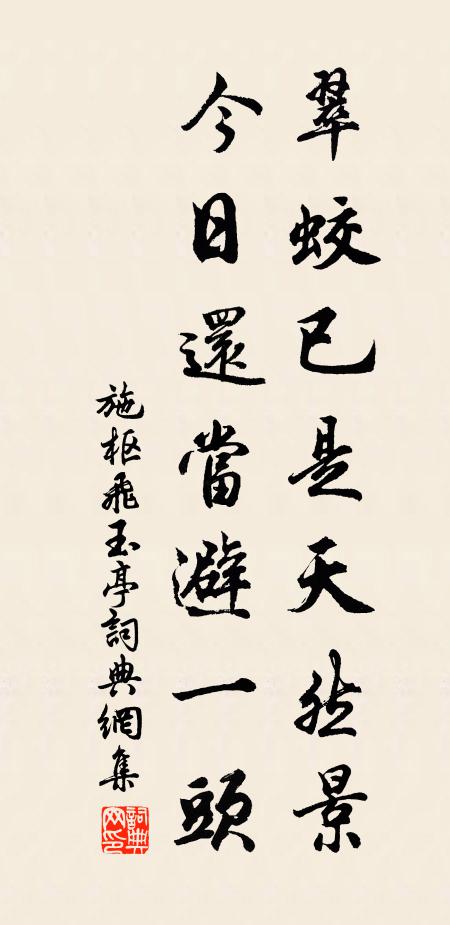 翠蛟已是天然景
今日還當避一頭
施枢飛玉亭詞典網集
詞典网印